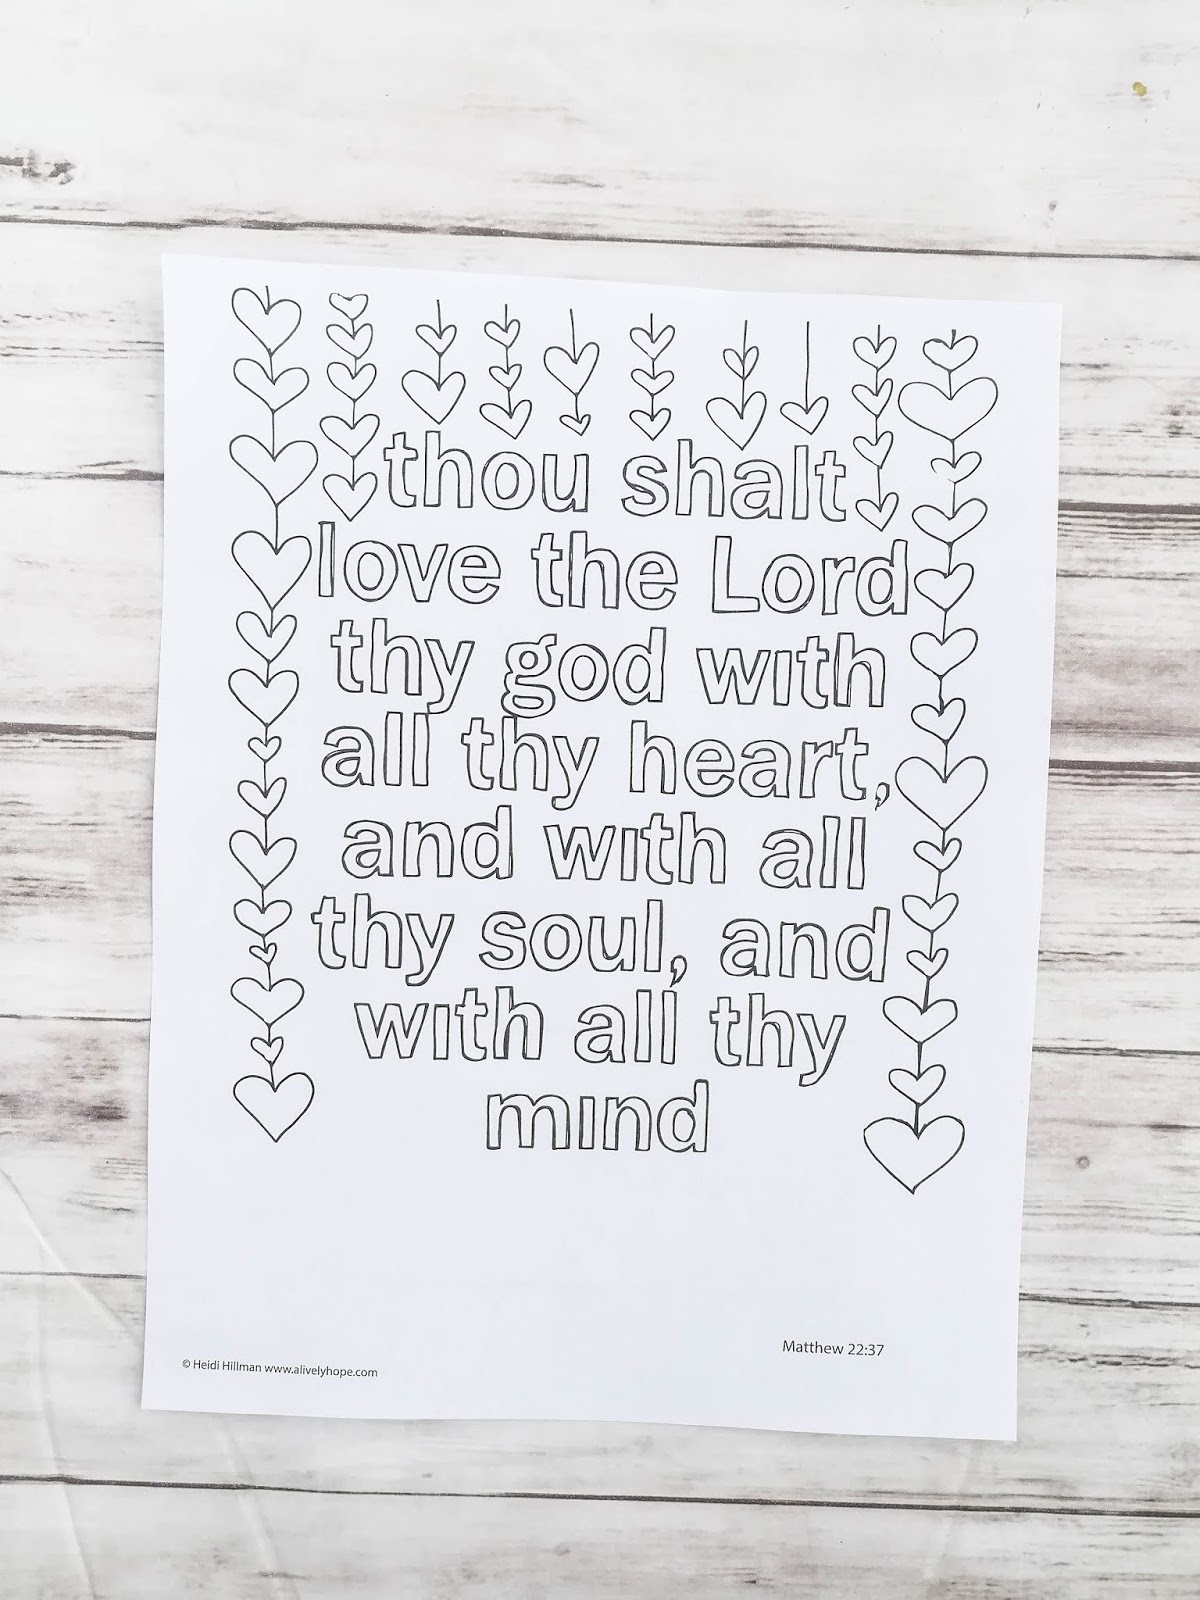 thou shalt
love the Lord
thy god with
all thy heart,
and with all
thy soul, and
with all thy
mind
Matthew 22:37
© Heidi Hillman www.alivelyhope.com